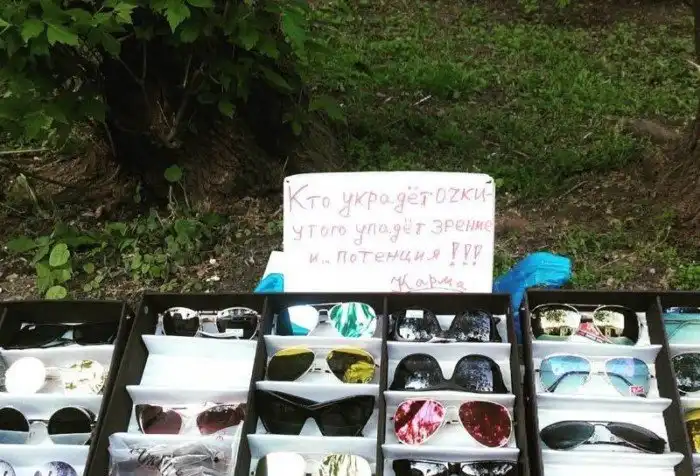 Кто украдёт очки-
у того упадёт зрение
и.. потенция !!!
Карма